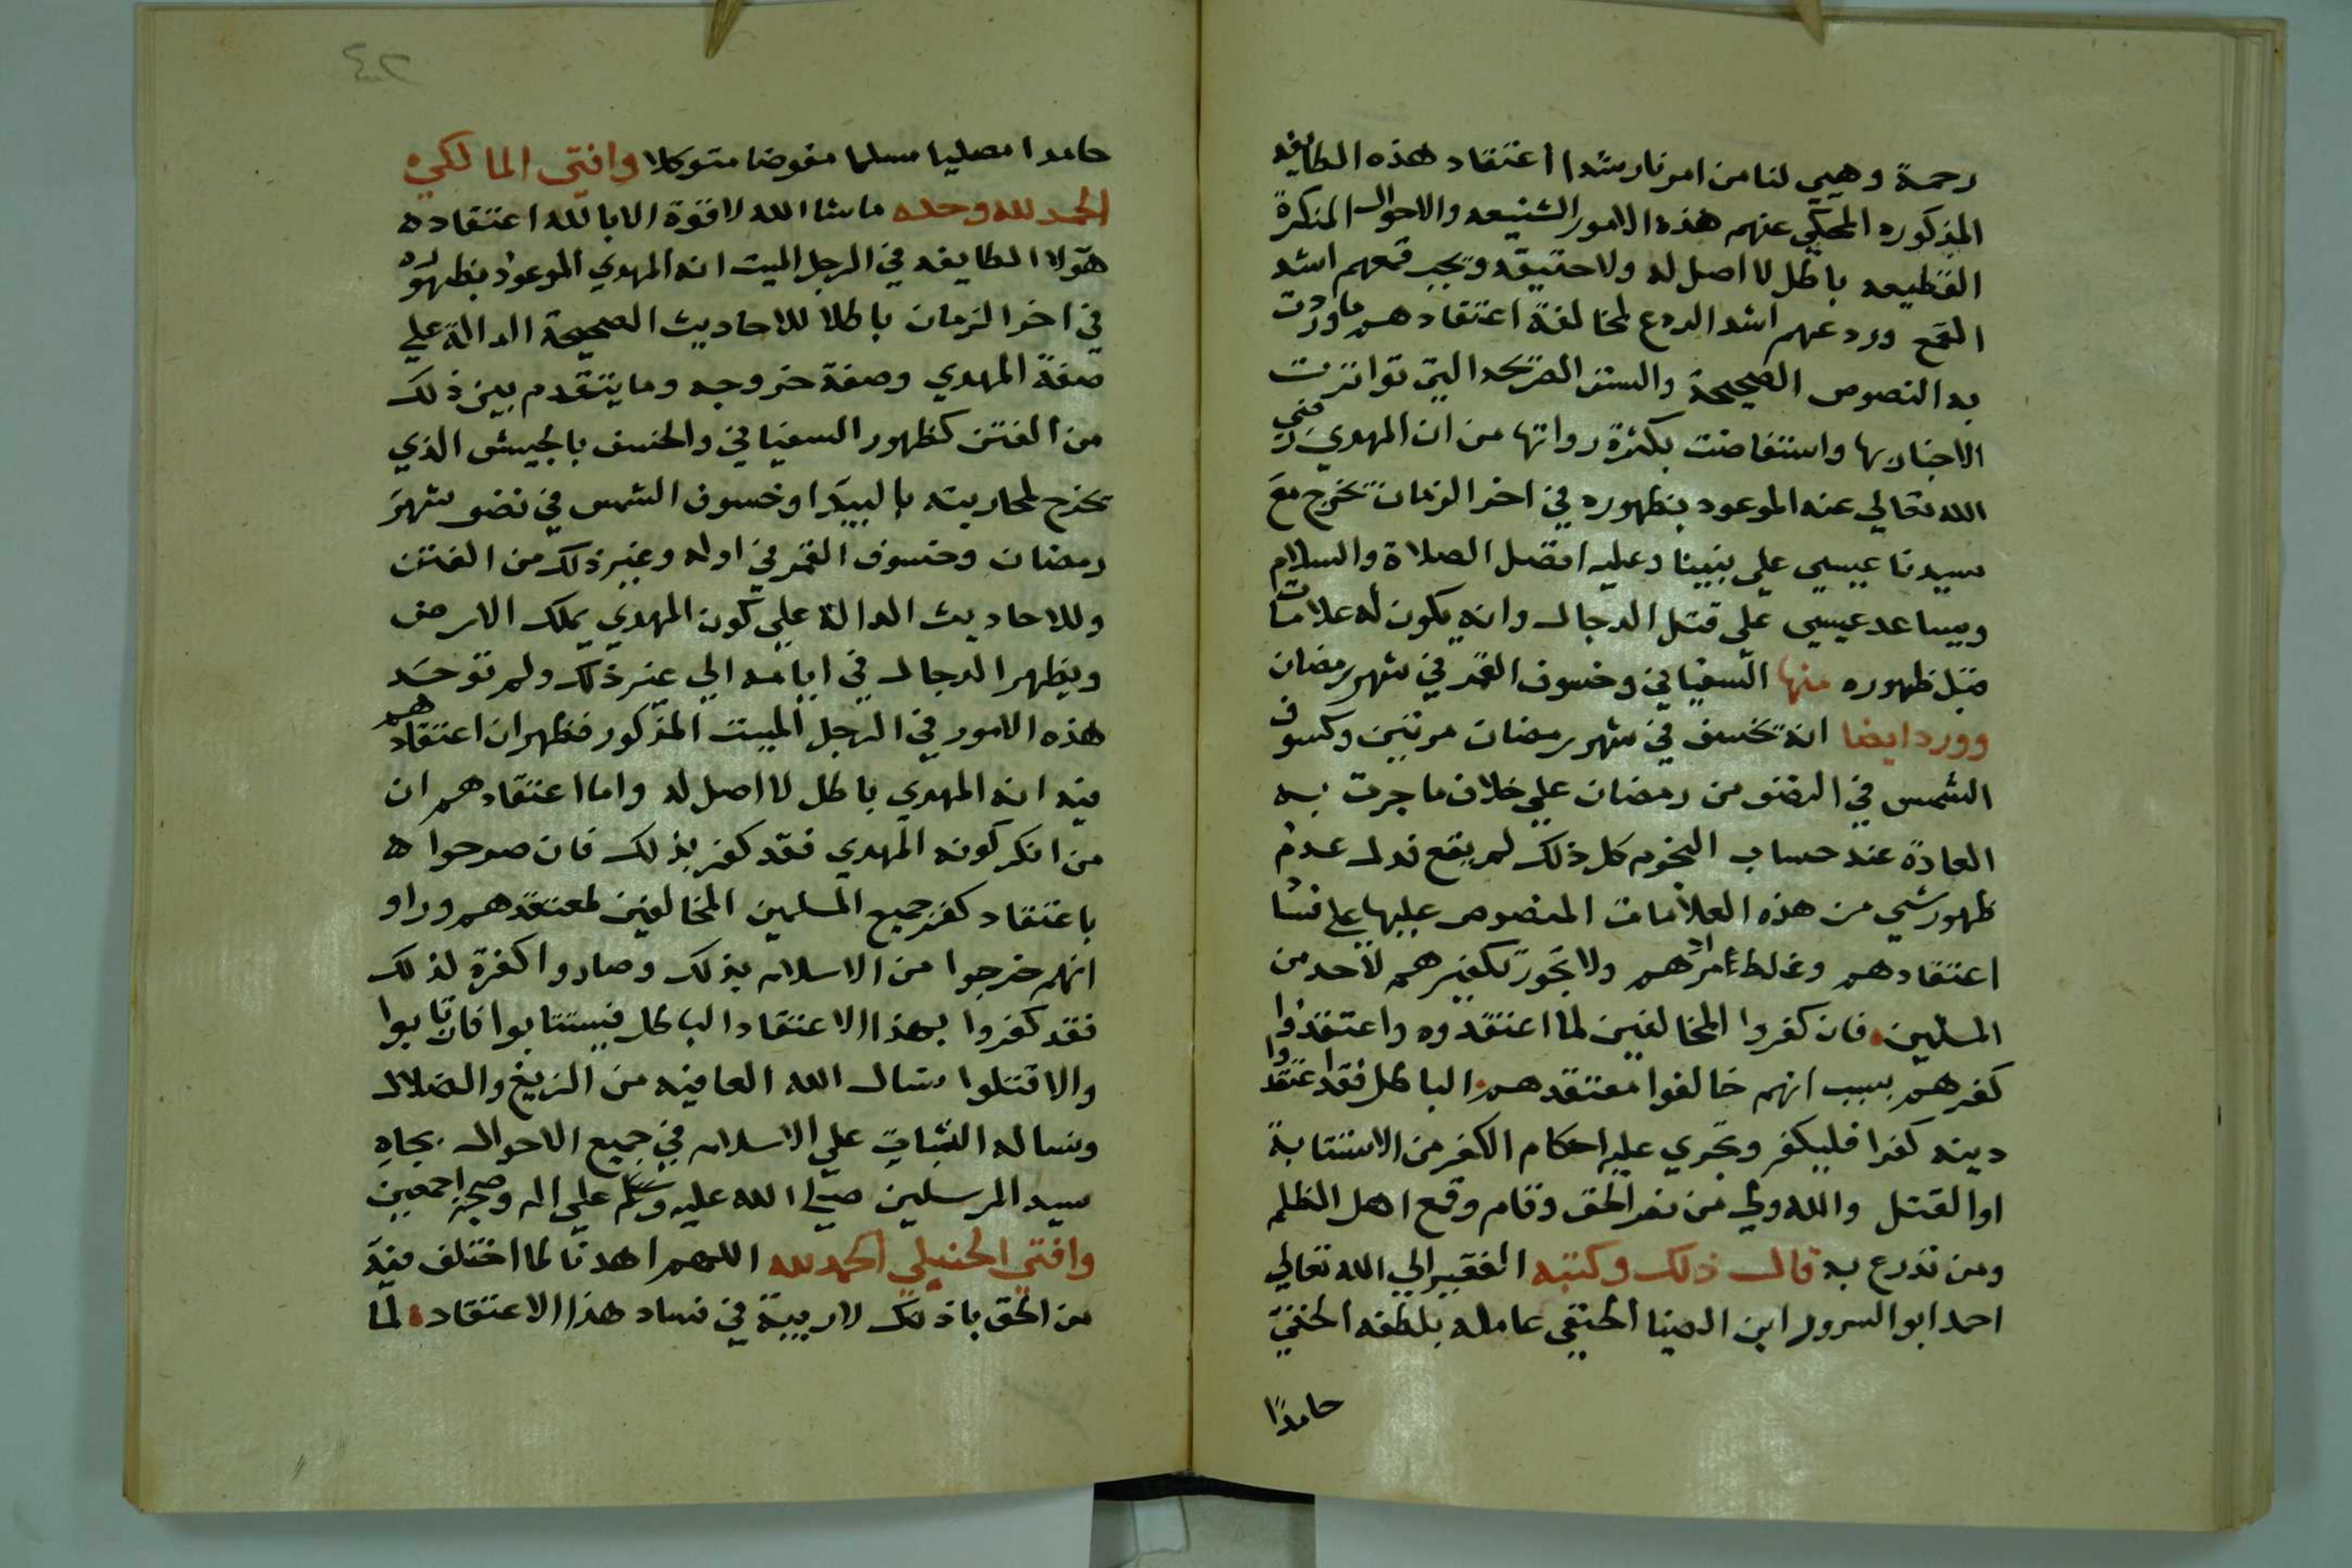 رحمة وهيي لنا من امرنا رشدا اعتقاد هذه الطايفه
المذكوره المحكي عنهم هذه الامور الشنيعه والاحوال المنكرة
الفظيعه باطل لا اصل له ولا حقيقه ويجب قمعهم اشد
القمع وردعهم اشد الردع لمخالفة اعتقادهم ما وردت
به النصوص الصحيحة والسنن الصريحه التي تواترت
الاخبار بها واستفاضت بكثرة رواتها من ان المهدي رضي
الله تعالي عنه الموعود بظهوره في اخر الزمان يخرج مع
سيدنا عيسي علي نبينا وعليه افضل الصلاة والسلام
ويساعد عيسي علي قتل الدجال وانه يكون له علامات
قبل ظهوره منها السفياني وخسوف القمر في شهر رمضان
وورد ايضا انه يخسف في شهر رمضان مرتين وكسوف
الشمس في النصف من رمضان علي خلاف ما جرت به
العادة عند حساب النجوم كل ذلك لم يقع فدل عدم
ظهور شي من هذه العلامات المنصوص عليها علي فساد
اعتقادهم وغلط مرادهم ولا يجوز تكفيرهم لاحد من
المسلمين فان كفروا المخالفين لما اعتقدوه واعتقدوا
كفرهم بسبب انهم خالفوا معتقدهم الباطل فقد اعتقدوا
دينه كفرا فليكفر ويجري عليه احكام الكفر من الاستتابة
او القتل والله ولي من نصر الحق وقام وقمع اهل الظلم
ومن تدرع به قال ذلك وكتبه الفقير الي الله تعالي
احمد ابو السرور ابن الضيا الحنفي عامله بلطفه الخفي
حامدا
٤٢
حامدا مصليا مسلما مفوضا متوكلا وافتي المالكي
الحمد لله وحده ماشا الله لا قوة الا بالله اعتقاد ه
هؤلا الطايفه في الرجل الميت انه المهدي الموعود بظهوره
في اخر الزمان باطلا للاحاديث الصحيحة الدالة علي
صفة المهدي وصفة خروجه وما يتقدم بين ذلك
من الفتن كظهور السفياني والخسف بالجيش الذي
يخرج لمحاربته بالبيدا وخسوف الشمس في نصف شهر
رمضان وخسوف القمر في اوله وغير ذلك من الفتن
وللاحاديث الدالة علي كون المهدي يملك الارض
ويظهر الدجال في ايامه الي غير ذلك ولم توجد
هذه الامور في الرجل الميت المذكور فظهر ان اعتقادهم
فيه انه المهدي باطل لا اصل له واما اعتقادهم ان
من انكر كونه المهدي فقد كفر بذلك فان صرحوا ه
باعتقاد كفر جميع المسلمين المخالفين لمعتقدهم وراو
انهم خرجوا من الاسلام بذلك وصاروا كفرة لذلك
فقد كفروا بهذا الاعتقاد الباطل فيستتابوا فان تابوا
والا قتلوا نسال الله العافيه من الزيغ والضلال
ونساله الثبات علي الاسلام في جميع الاحوال بجاه
سيد المرسلين صلي الله عليه وسلم علي اله وصحبه اجمعين
وافتي الحنبلي الحمد لله اللهم اهدنا لما اختلف فيه
من الحق باذنك لا ريبة في فساد هذا الاعتقاد لما